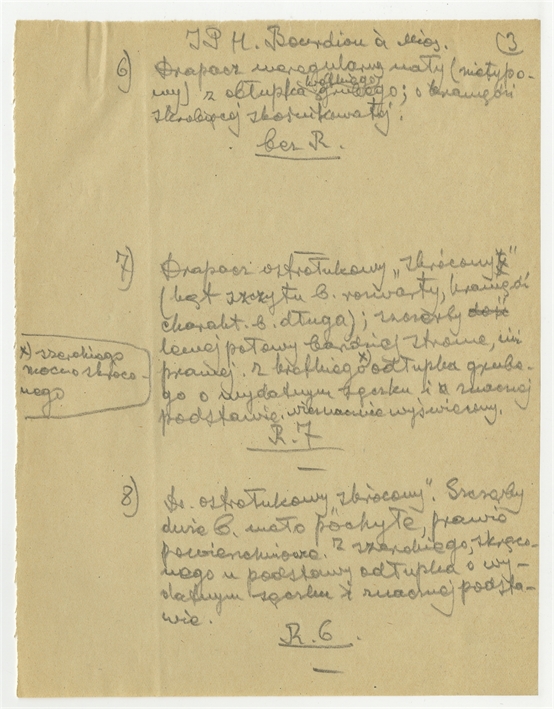 IP H. Bourdion à Miós. (3
6) Drapacz nieregularny mały (nietypo-
wy) z odłupka krótkiego grubego; o krawędzi
skrobiącej skośnikowatej.
bez R.
7) Drapacz ostrołukowy "skrócony"
(kąt szczytu b. rozwarty, krawędź
charakt. b. długa); szczerby dość
lewej połowy bardziej strome, niż
prawej. Z krótkiego x) odłupka grube-
go o wydatnym sęczku i znacznej
podstawie. nieznacznie wyświecony.
R. 7
x) szerokiego
mocno skróco-
nego
8) Dr. ostrołukowy "skrócony". Szczerby
duże b. mało pochyłe, prawie
powierzchniowe. Z szerokiego, skręco-
nego u podstawy odłupka o wy-
datnym sęczku i znacznej podsta-
wie.
R. 6.